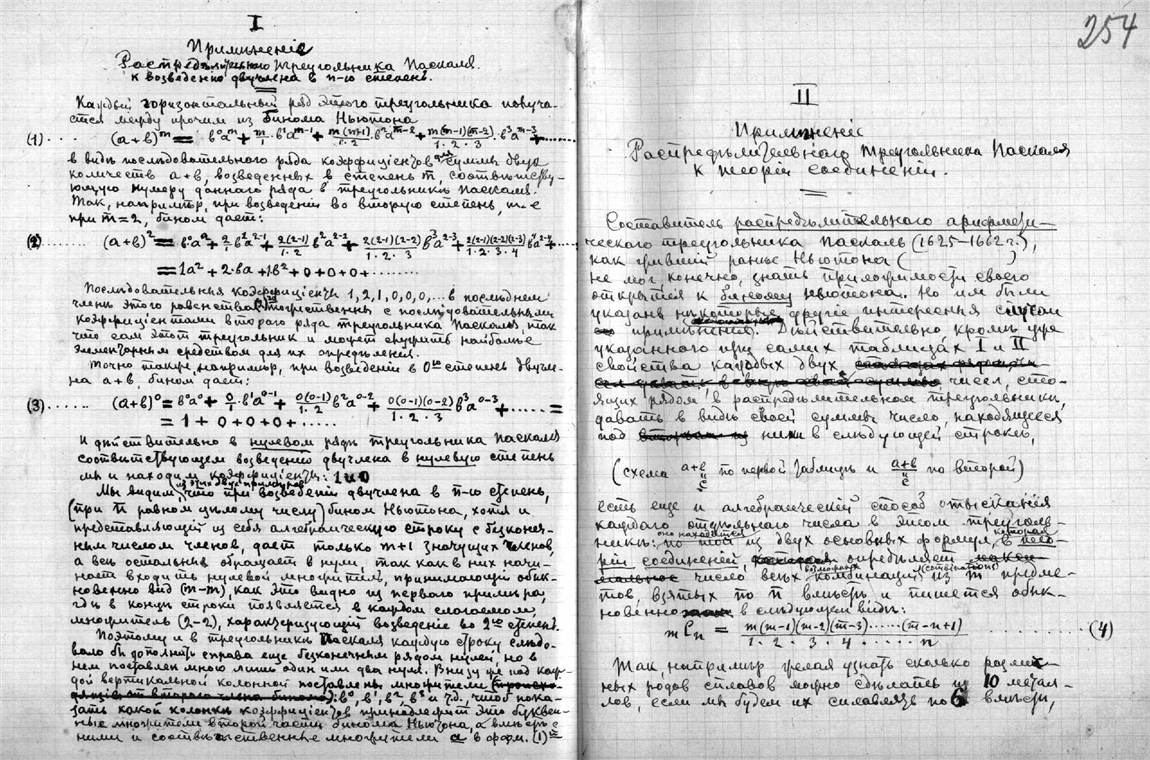 I
Примѣненіе
Распредѣлительнаго треугольника Паскаля
к возведенію двучлена в n-ю степень.
Каждый горизонтальный ряд этого треугольника получа-
ется между прочим из бинома Ньютона
(1) ..... (a+b)^m = b⁰a^m + m/1 · b¹a^(m-1) + m(m-1)/1·2 · b²a^(m-2) + m(m-1)(m-2)/1·2·3 · b³a^(m-3) + ........
в видѣ послѣдовательнаго ряда коэффиціентов для суммы двух
количеств a+b, возведенных в степень m, соотвѣтству-
ющую нумеру даннаго ряда в треугольникѣ Паскаля.
Так, напримѣр, при возведеніи во вторую степень, т.е
при m=2, бином дает:
(2) ....... (a+b)² = b⁰a² + 2/1 b¹a^(2-1) + 2(2-1)/1·2 b²a^(2-2) + 2(2-1)(2-2)/1·2·3 b³a^(2-3) + 2(2-1)(2-2)(2-3)/1·2·3·4 b⁴a^(2-4) + ......
= 1a² + 2·ba + 1b² + 0 + 0 + 0 + ........
Послѣдовательныя коэффиціенты 1, 2, 1, 0, 0, 0, ... в послѣднем
членѣ этого равенства (2) тождественны с послѣдовательными
коэффиціентами второго ряда треугольника Паскаля, так
что сам этот треугольник и может служить наиболѣе
элементарным средством для их опредѣленія.
Точно также, напримѣр, при возведеніи в 0ую степень двучле-
на a+b, бином дает:
(3) ...... (a+b)⁰ = b⁰a⁰ + 0/1 · b¹a^(0-1) + 0(0-1)/1·2 b²a^(0-2) + 0(0-1)(0-2)/1·2·3 b³a^(0-3) + ...... =
= 1 + 0 + 0 + 0 + .....
И дѣйствительно в нулевом рядѣ треугольника Паскаля
соотвѣтствующем возведенію двучлена в нулевую степень
мы и находим коэффиціенты: 1 и 0
Мы видим из этих двух примѣров, что при возведеніи двучлена в n-ю степень,
(при n равном цѣлому числу) бином Ньютона, хотя и
представляющій из себя алгебраическую строку с безконеч-
ным числом членов, дает только m+1 значущих членов,
а всѣ остальные обращает в нули, так как в них начи-
нает входить нулевой множитель, принимающій обык-
новенно вид (m-m), как это видно из перваго примѣра,
гдѣ в концѣ строки появляется в каждом слагаемом,
множитель (2-2), характеризующій возведеніе во 2ую степень.
Поэтому и в треугольникѣ Паскаля каждую строку слѣдо-
вало бы дополнить справа еще безконечным рядом нулей, но в
нем поставлен мною лишь один или два нуля. Внизу же под каж-
дой вертикальной колонной поставлены множители
b⁰, b¹, b², b³ и т.д. чтоб пока-
зать какой колонкѣ коэффиціентов принадлежит это буквен-
ные множители второй части бинома Ньютона, а вмѣстѣ с
ними и соотвѣтственные множители a в форм. (1)
254
II
Примѣненіе
Распредѣлительнаго треугольника Паскаля
к теоріи соединеній.
Составитель распредѣлительнаго арифмети-
ческаго треугольника Паскаль (1625–1662 г.),
как жившій раньше Ньютона ( )
не мог, конечно, знать приложимости своего
открытія к биному Ньютона. Но им были
указаны нѣкоторые другіе интересные случаи
примѣненія. Дѣйствительно кромѣ уже
указаннаго при самих таблицах I и II
свойства каждых двух чисел, стоя-
ящих рядом в распредѣлительном треугольникѣ,
давать в видѣ своей суммы число, находящееся
под ними в слѣдующей строкѣ,
(схема a+b = c по первой таблицѣ и a+b = c по второй)
есть еще и алгебраическій способ отысканія
каждаго отдѣльнаго числа в этом треуголь-
никѣ: оно находится по той из двух основных формул, которая в тео-
ріи соединеній опредѣляет
число всѣх возможных комбинацій (combinations) из m предме-
тов, взятых по n вмѣстѣ и пишется обык-
новенно в слѣдующем видѣ:
mCn = m(m-1)(m-2)(m-3)......(m-n+1) / 1·2·3·4.......n .......... (4)
Так, напримѣр, желая узнать сколько различ-
ных родов сплавов можно сдѣлать из 10 метал-
лов, если мы будем их сплавлять по 6 вмѣстѣ,